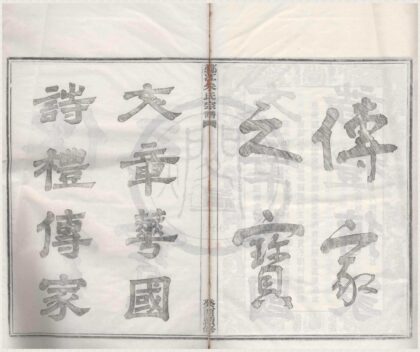 傳家
之寶
氏宗譜
文章華國
詩禮傳家